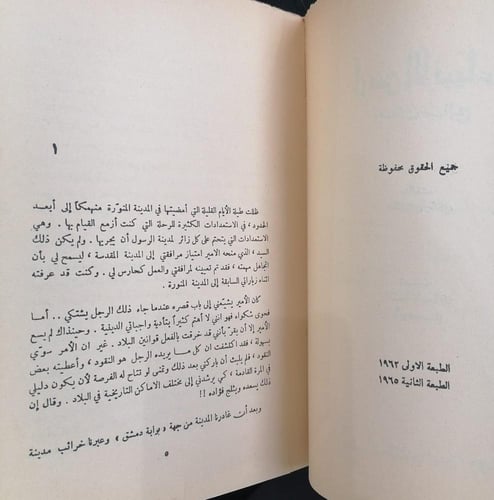 جميع الحقوق محفوظة
الطبعة الاولى ١٩٦٢
الطبعة الثانية ١٩٦٥
١
ظللت طيلة الأيام القليلة التي أمضيتها في المدينة المنوّرة منهمكاً إلى أبعد
الحدود ، في الاستعدادات الكثيرة للرحلة التي كنت أزمع القيام بها . وهي
الاستعدادات التي يتحتم على كل زائر لمدينة الرسول أن يجريها . ولم يكن ذلك
السيد ، الذي منحه الامير امتياز مرافقتي إلى المدينة المقدسة ، ليسمح لي بأن
أتجاهل مهمته ، فقد تم تعيينه لمرافقتي والعمل كحارس لي . وكنت قد عرفته
اثناء زياراتي السابقة إلى المدينة المنورة .
كان الأمير يشيّعني إلى باب قصره عندما جاء ذلك الرجل يشتكي .. أما
فحوى شكواه فهو انني لا أهتم كثيراً بتأدية واجباتي الدينية . وحينذاك لم يسع
الأمير إلا أن يقرّ بأنني قد خرقت بالفعل قوانين البلاد . غير ان الأمر سوّي
بسهولة ، فقد اكتشفت ان كل ما يريده الرجل هو النقود ، وأعطيته بعض
النقود ، فلم يلبث أن باركني بعد ذلك وتمنى لو تتاح له الفرصة لأن يكون دليلي
في المرة القادمة ، كي يرشدني إلى مختلف الاماكن التاريخية في البلاد . وقال إن
ذلك يسعده ويثلج فؤاده !!
وبعد أن غادرنا المدينة من جهة « بوابة دمشق » وعبرنا خرائب مدينة
٥